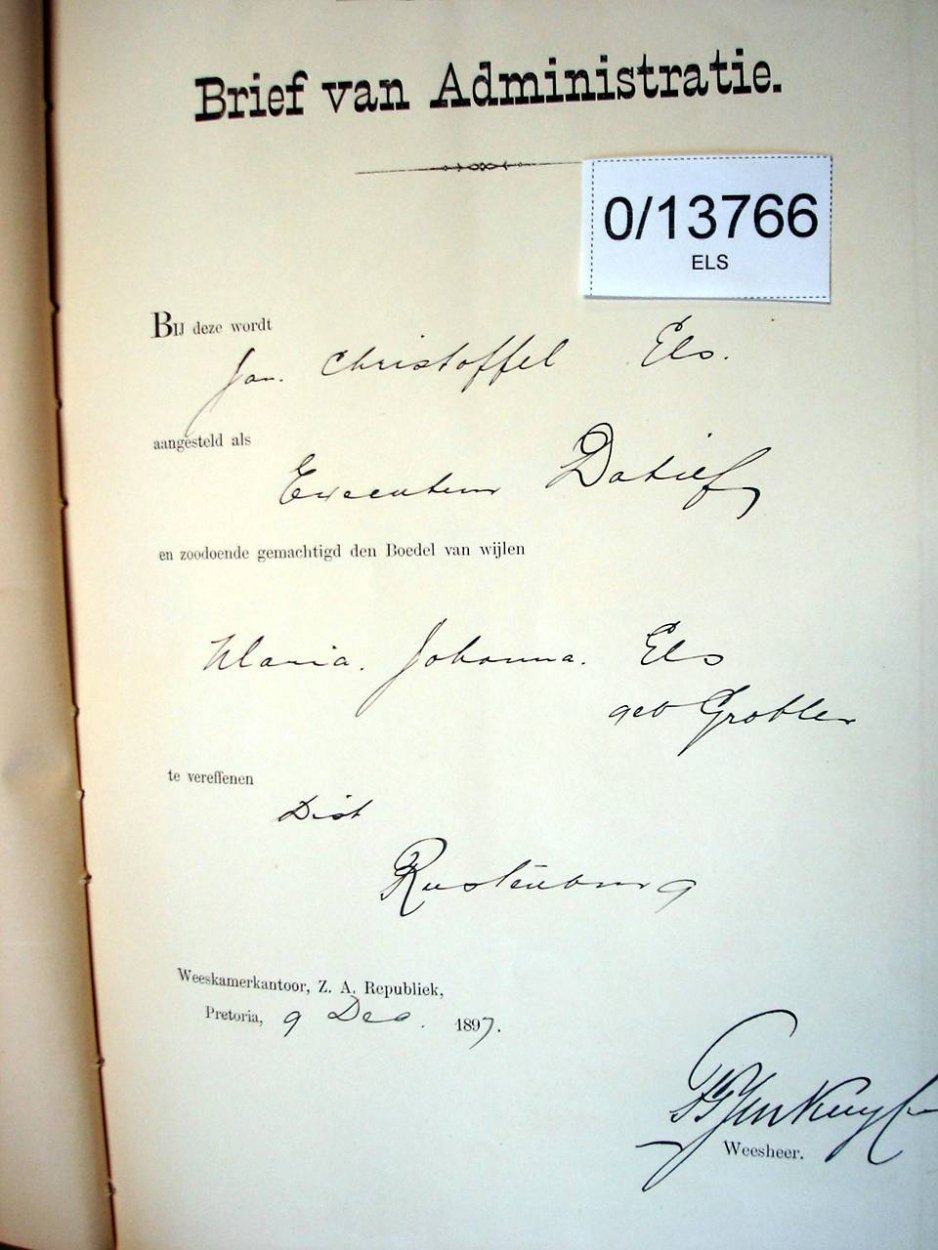 Brief van Administratie.
0/13766
ELS
BIJ deze wordt
Jan. Christoffel Els.
aangesteld als
Executeur Datief
en zoodoende gemachtigd den Boedel van wijlen
Maria. Johanna. Els
geb Grobler
te vereffenen
Dist
Rustenburg
Weeskamerkantoor, Z. A. Republiek,
Pretoria, 9 Dec. 1897.
Weesheer.